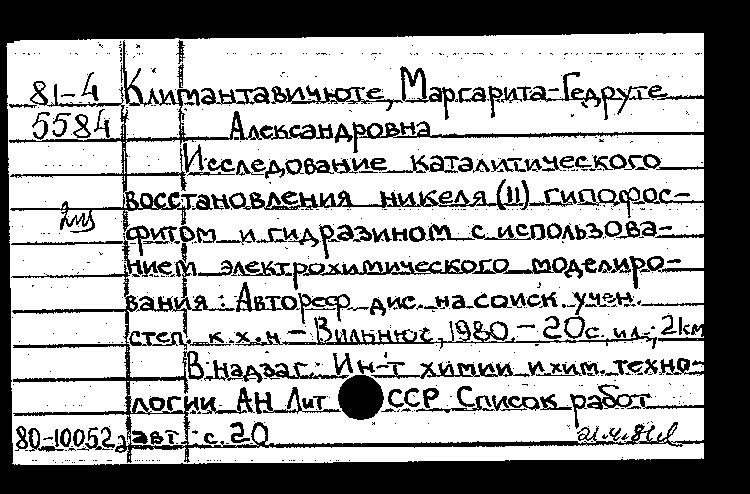 81-4 Климантавичюте, Маргарита-Гедруте
5584 Александровна
Исследование каталитического
восстановления никеля (II) гипофос-
фитом и гидразином с использова-
нием электрохимического моделиро-
вания: Автореф. дис. на соиск. учен.
степ. к.х.н. - Вильнюс, 1980. - 20с. ил.; 2км
В надзаг.: Ин-т химии и хим. техно-
логии АН Лит ССР. Список работ
80-10052 авт. с. 20